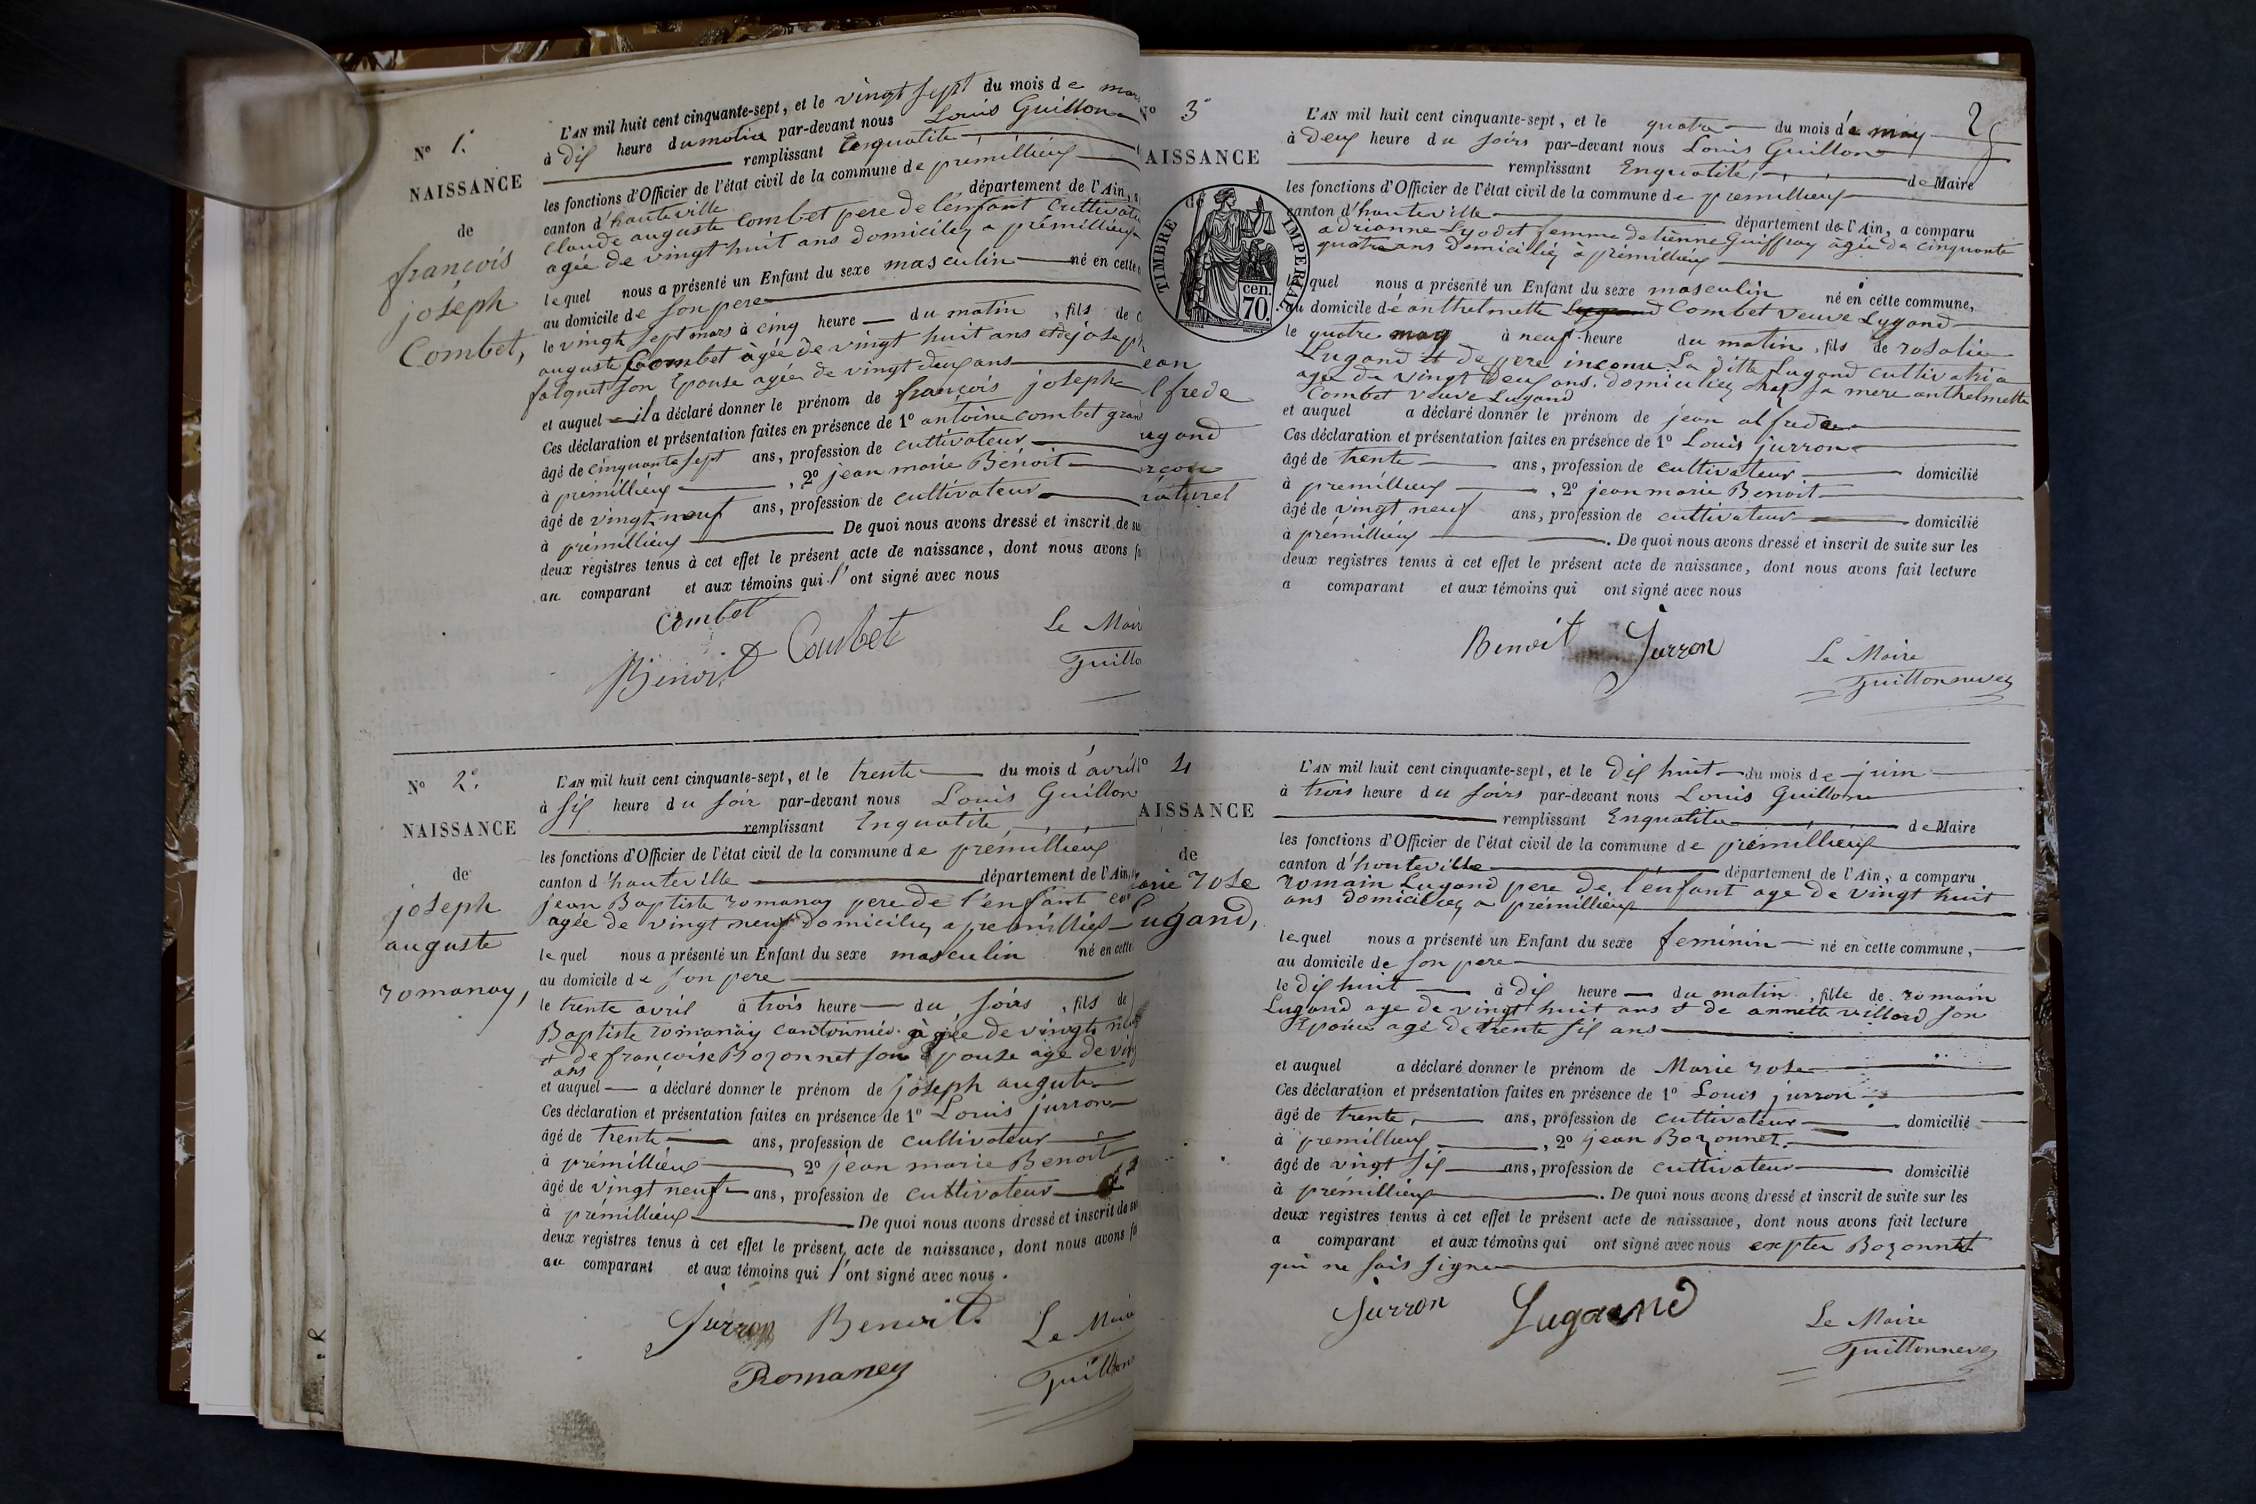 N° 1.
NAISSANCE
de
françois
joseph
Combet,
L'AN mil huit cent cinquante-sept, et le vingt sept du mois de
à dix heure du matin par-devant nous Louis Guillon
remplissant Enqualité
les fonctions d'Officier de l'état civil de la commune de prémillieux
canton d'hauteville département de l'Ain,
Claude auguste Combet pere de l'enfant
agée de vingt huit ans domiciliez a prémillieux
lequel nous a présenté un Enfant du sexe masculin né en cette
au domicile de son pere
le vingt sept mars à cinq heure du matin, fils de
auguste Combet àgée de vingt huit ans et de joseph
falquet son Epouse agée de vingt deux ans
et auquel il a déclaré donner le prénom de françois joseph
Ces déclaration et présentation faites en présence de 1° antoine combet
âgé de cinquante sept ans, profession de cultivateur
à prémillieux, 2° jean marie Benoit
âgé de vingt neuf ans, profession de cultivateur
à prémillieux De quoi nous avons dressé et inscrit de
deux registres tenus à cet effet le présent acte de naissance, dont nous avons
au comparant et aux témoins qui l'ont signé avec nous
Combet
Benoit Combet
Le
N° 2.
NAISSANCE
de
joseph
auguste
romanay,
L'AN mil huit cent cinquante-sept, et le trente du mois d'avril
à six heure du soir par-devant nous Louis Guillon
remplissant Enqualité
les fonctions d'Officier de l'état civil de la commune de prémillieux
canton d'hauteville département de l'Ain,
jean Baptiste romanay pere de l'enfant
agée de vingt neuf domiciliez a premillieux
lequel nous a présenté un Enfant du sexe masculin né en cette
au domicile de son pere
le trente avril à trois heure du soirs, fils de
Baptiste romanay cantonnier àgée de vingt
et de françoise Bozonnet son Epouse age de
ans
et auquel a déclaré donner le prénom de joseph auguste
Ces déclaration et présentation faites en présence de 1° Louis jurron
âgé de trente ans, profession de cultivateur
à prémillieux, 2° jean marie Benoit
âgé de vingt neuf ans, profession de cultivateur
à prémillieux De quoi nous avons dressé et inscrit de
deux registres tenus à cet effet le présent acte de naissance, dont nous avons
au comparant et aux témoins qui l'ont signé avec nous.
Jurron Benoit
Le
Romaney
3°
25
AISSANCE
de
TIMBRE IMPERIAL
70. cen.
L'AN mil huit cent cinquante-sept, et le quatre du mois de may
à deux heure du soirs par-devant nous Louis Guillon
remplissant Enqualité, de Maire
les fonctions d'Officier de l'état civil de la commune de premillieux
canton d'hauteville département de l'Ain, a comparu
adrianne Lyodet femme detienne Guiffray âgée de cinquante
quatre ans domiciliez à prémillieux
lequel nous a présenté un Enfant du sexe masculin né en cette commune,
au domicile de anthelmette Combet veuve Lygand
le quatre may à neuf heure du matin, fils de rosalie
Lugand et de pere inconu La ditte Lugand cultivatrice
age de vingt deux ans. domiciliez chez sa mere anthelmette
Combet veuve Lugand
et auquel a déclaré donner le prénom de jean alfrede
Ces déclaration et présentation faites en présence de 1° Louis jurron
âgé de trente ans, profession de cultivateur domicilié
à premillieux, 2° jean marie Benoit
âgé de vingt neuf ans, profession de cultivateur domicilié
à prémillieux. De quoi nous avons dressé et inscrit de suite sur les
deux registres tenus à cet effet le présent acte de naissance, dont nous avons fait lecture
a comparant et aux témoins qui ont signé avec nous
Benoit Jurron
Le Maire
Guillonnevez
4
AISSANCE
de
L'AN mil huit cent cinquante-sept, et le dix huit du mois de juin
à trois heure du soirs par-devant nous Louis Guillon
remplissant Enqualité de Maire
les fonctions d'Officier de l'état civil de la commune de prémillieux
canton d'hauteville département de l'Ain, a comparu
romain Lugand pere de l'enfant age de vingt huit
ans domiciliez a prémillieux
lequel nous a présenté un Enfant du sexe feminin né en cette commune,
au domicile de son pere
le dix huit à dix heure du matin, fille de romain
Lugand age de vingt huit ans et de annette villard son
Epouse agé de trente six ans
et auquel a déclaré donner le prénom de Marie rose
Ces déclaration et présentation faites en présence de 1° Louis jurron
âgé de trente, ans, profession de cultivateur domicilié
à premillieux, 2° jean Bozonnet.
âgé de vingt six ans, profession de cultivateur domicilié
à prémillieux. De quoi nous avons dressé et inscrit de suite sur les
deux registres tenus à cet effet le présent acte de naissance, dont nous avons fait lecture
a comparant et aux témoins qui ont signé avec nous expter Bozonnet
qui ne sais signer
Jurron Lugand
Le Maire
Guillonnevez